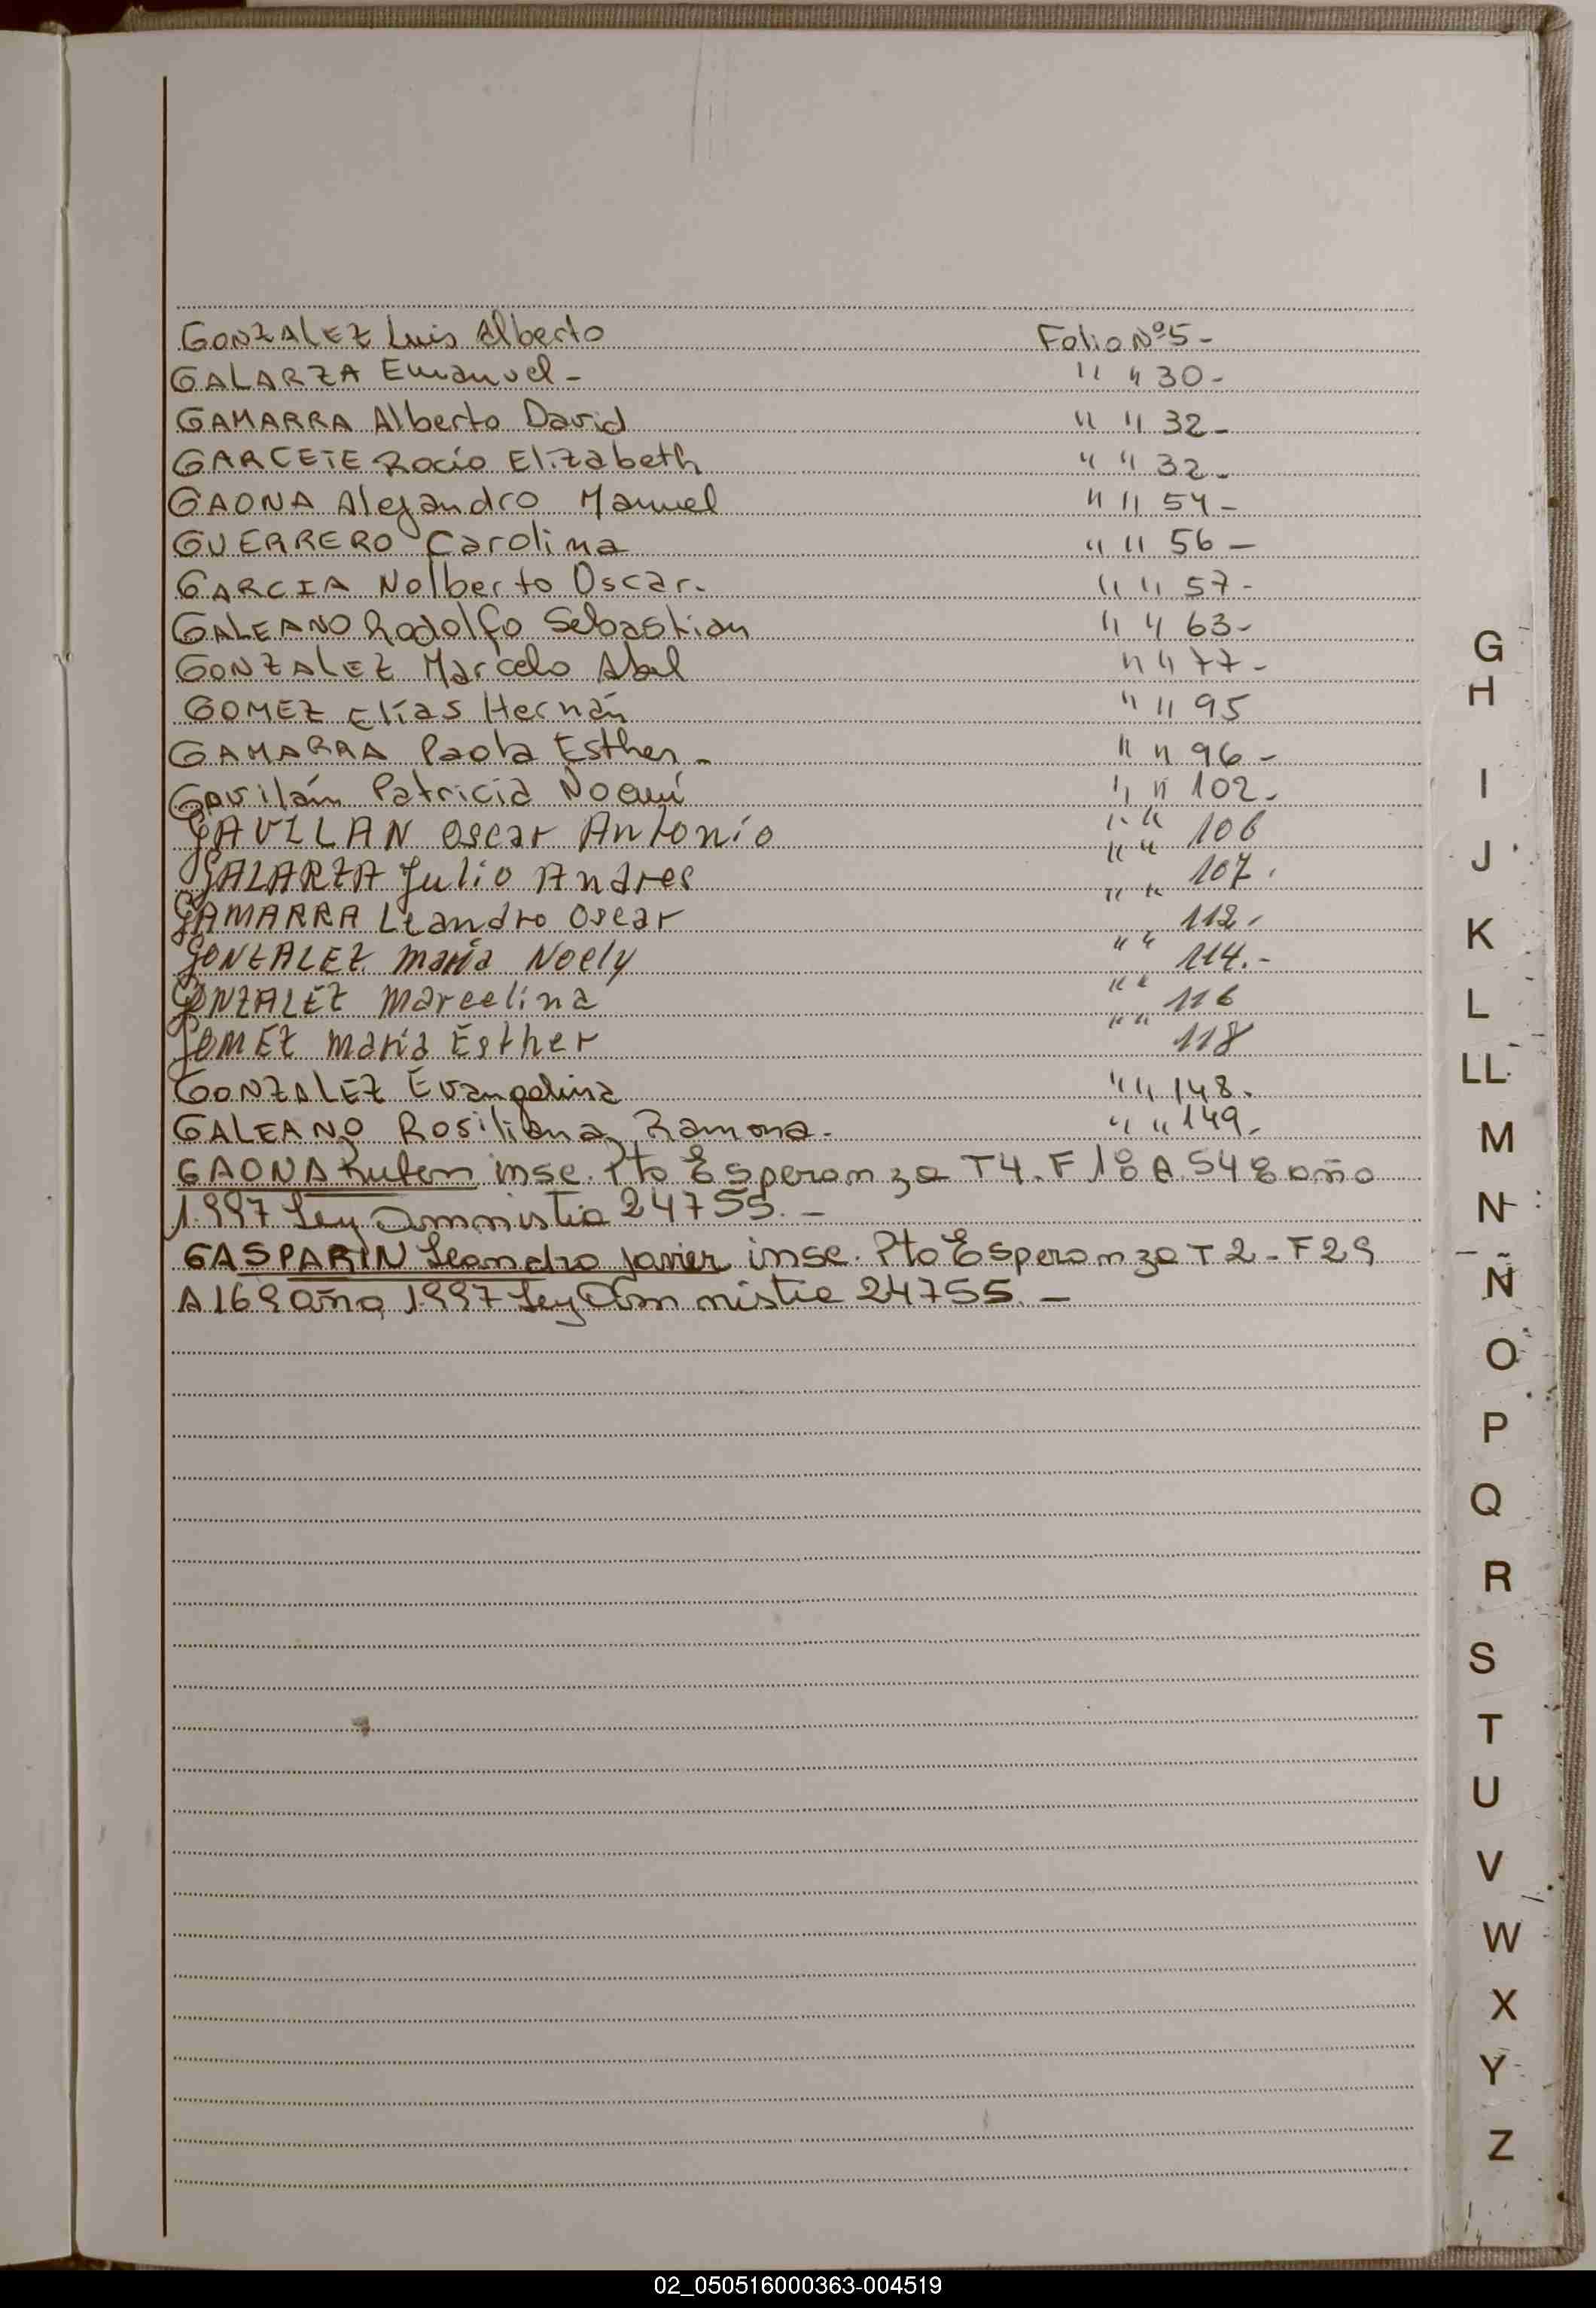 GONZALEZ Luis Alberto Folio Nº 5-
GALARZA Emanuel- " " 30-
GAMARRA Alberto David " " 32-
GARCETE Rocío Elizabeth " " 32-
GAONA Alejandro Manuel " " 54-
GUERRERO Carolina " " 56-
GARCIA Nolberto Oscar. " " 57-
GALEANO Rodolfo Sebastian " " 63-
GONZALEZ Marcelo Abel " " 77-
GOMEZ Elías Hernán " " 95
GAMARRA Paola Esther- " " 96-
Gavilán Patricia Noemí " " 102-
GAVILLAN Oscar Antonio " " 106
GALARZA Julio Andres " " 107.
GAMARRA Leandro Oscar " " 112.
GONZALEZ María Noely " " 114.-
GONZALEZ Marcelina " " 116
GOMEZ María Esther " " 118
GONZALEZ Evangelina " " 148.
GALEANO Rosiliana Ramona. " " 149.
GAONA Ruben insc. Pto Esperanza T4. F18 A. 548 año
1997 Ley Amnistia 24755.-
GASPARIN Leandro Javier insc. Pto Esperanza T2-F29
A169 año 1997 Ley Amnistia 24755.-
G
H
I
J
K
L
LL
M
N
Ñ
O
P
Q
R
S
T
U
V
W
X
Y
Z
02_050516000363-004519